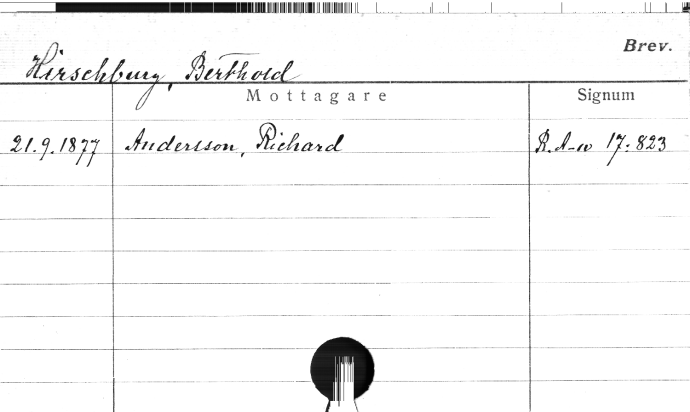 Brev.
Hirschburg, Berthold
Mottagare Signum
21.9.1877 Andersson, Richard R.A-n 17:823